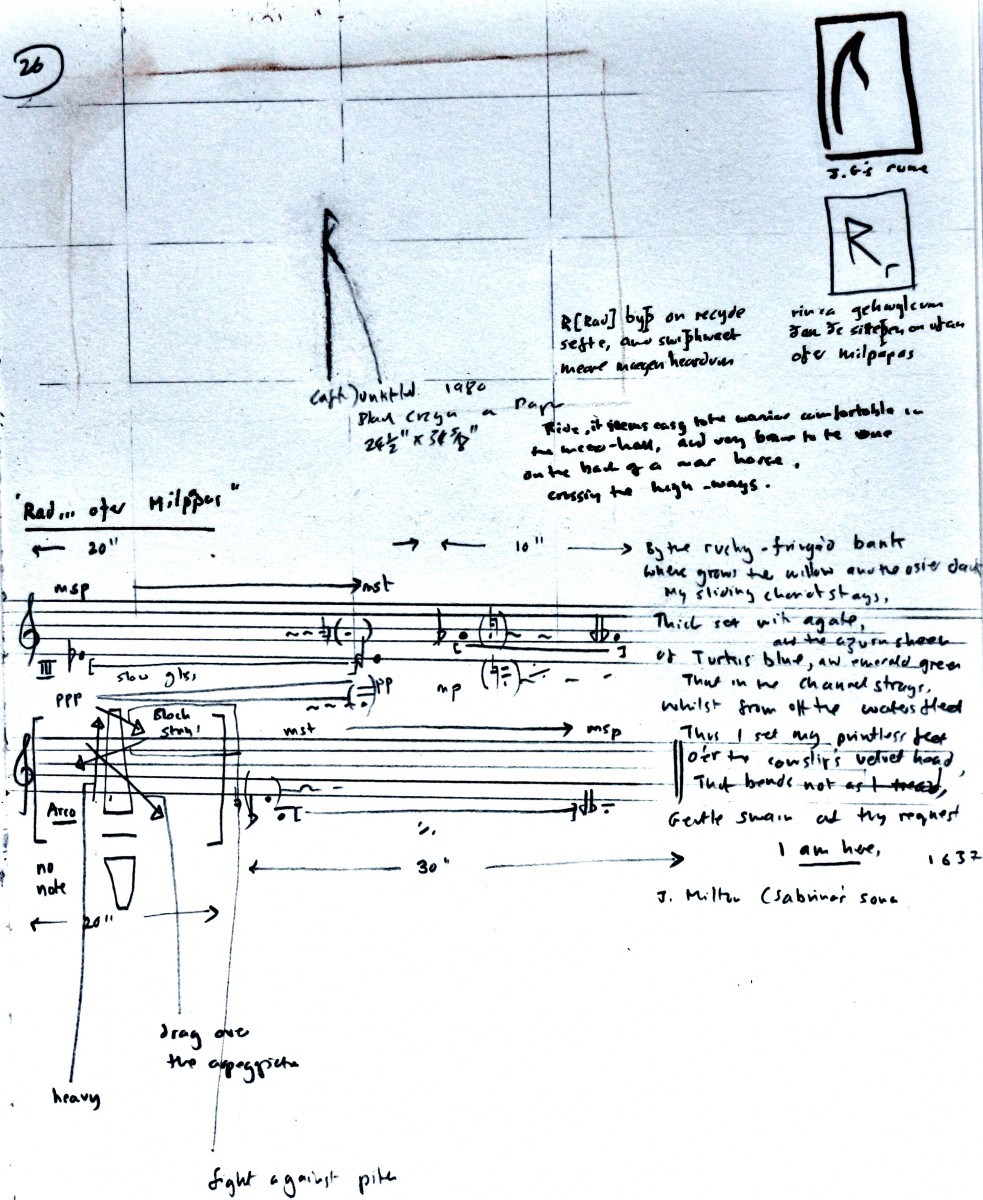 26
J.G's rune
R r
R
R[Rad] byþ on recyde
sefte, and swiþhwæt
meare maegen heardum
ofer milpaþas
untitled. 1980
Black Crayon on Paper
Ride, it seems easy to the warrior comfortable in
the mead-hall, and very brave to the one
on the back of a war horse,
crossing the high-ways.
"Rad... ofer Milpaþas"
20"
10"
msp
mst
III
slow gliss
ppp
pp
mp
Block
mst
msp
Arco
no
note
20"
30"
drag over
the
heavy
fight against pitch
By the rushy-fringèd bank
where grows the willow and the osier dank
My sliding chariot stays,
Thick set with agate,
and the azurn sheen
of Turkis blue, and emerald green
That in the channel strays,
Whilst from off the waters fleet
Thus I set my printless feet
O'er the cowslip's velvet head,
That bends not as I tread,
Gentle swain at thy request
I am here,
1637
J. Milton (Sabrina's song